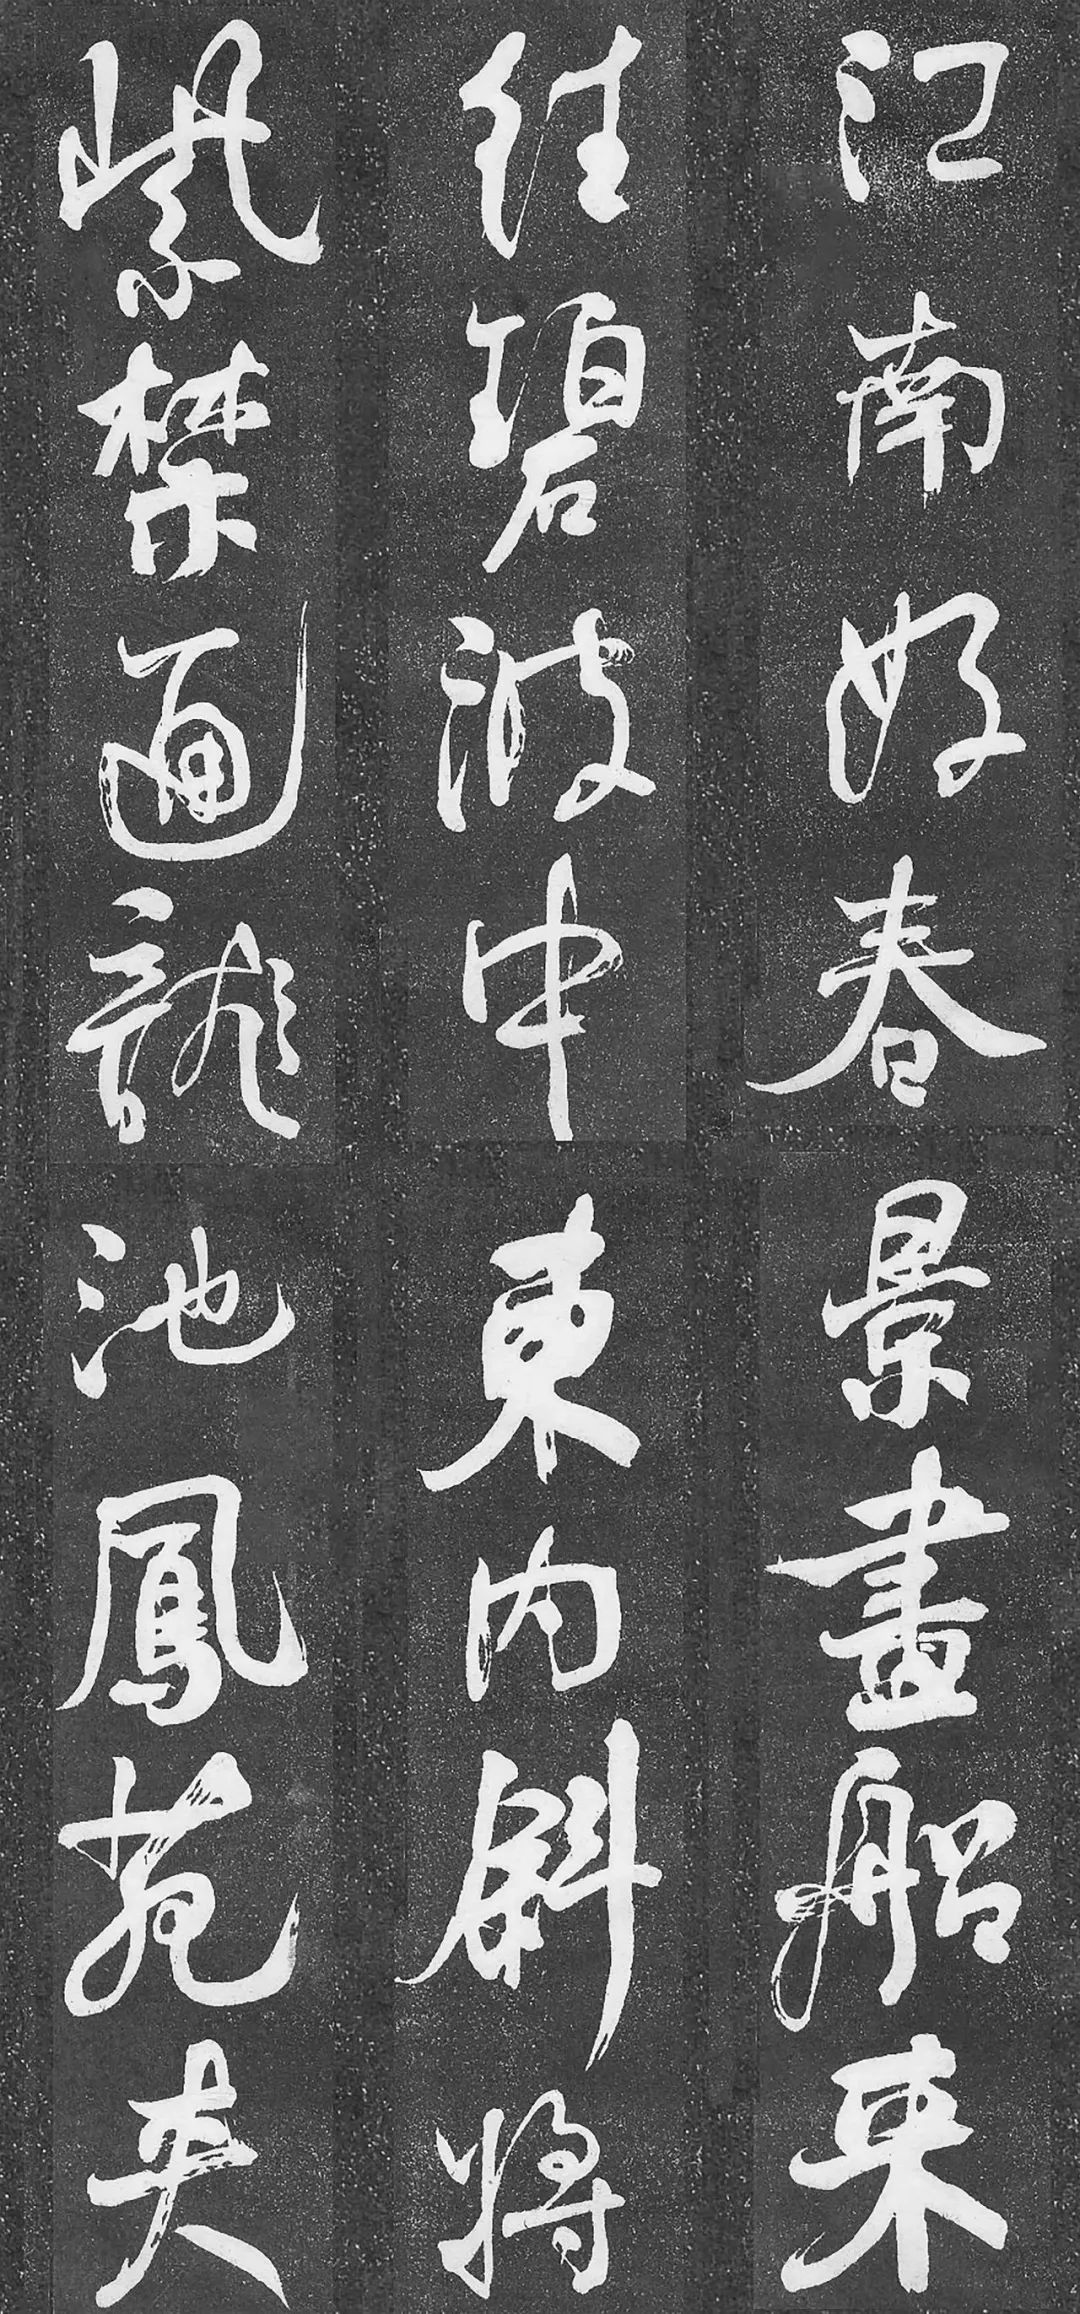 江南好春景畫船來
往碧波中東內斜將
紫禁通詠池鳳苑夾